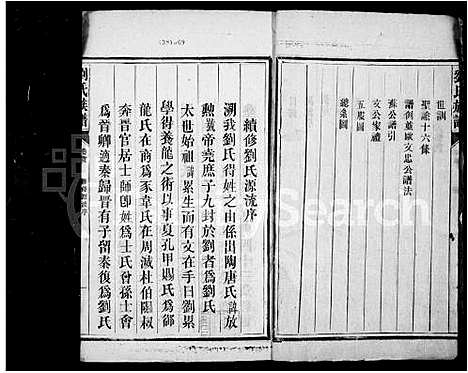 劉氏族譜
世訓
聖諭十六條
譜例蘆歐文忠公譜法
蘇公譜引
文公家禮
五服圖
總系圖
續修劉氏源流序
溯我劉氏得姓之由係出陶唐氏諱放
勲冀帝堯庶子九封於劉者為劉氏
太世始祖諱累生而有文在手曰劉累
學得養龍之術以事夏孔甲賜氏為御
龍氏在商為豕韋氏在周滅杜伯隰叔
奔晉官居士師卽姓為士氏曾孫士會
爲首卿適秦歸晉有子留秦復爲劉氏
劉氏族譜